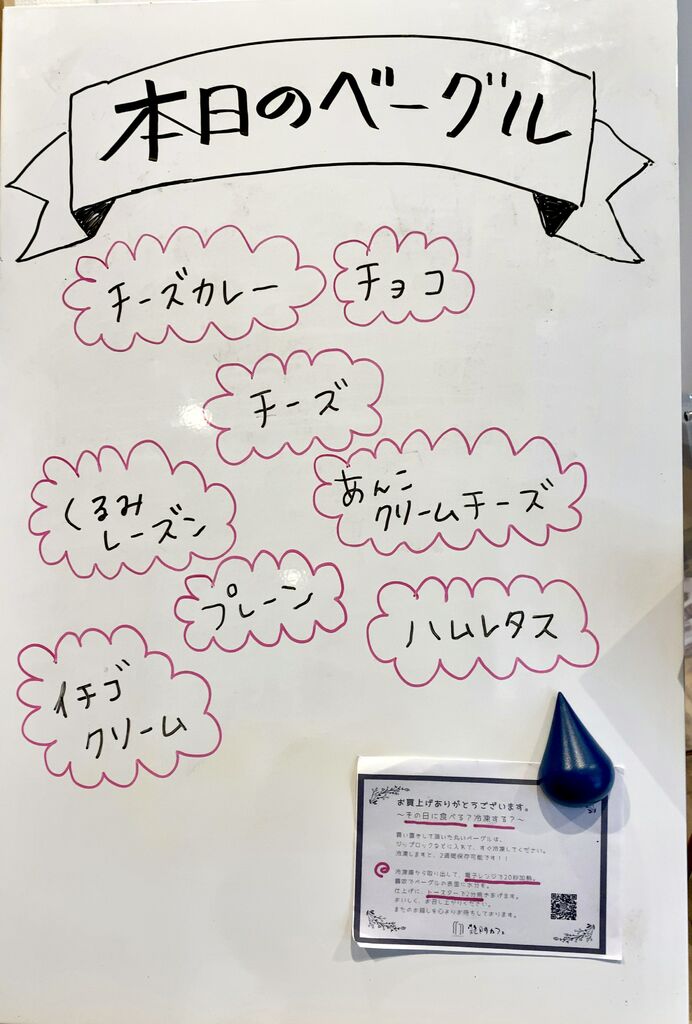 本日のベーグル
チーズカレー
チョコ
チーズ
くるみ
レーズン
あんこ
クリームチーズ
プレーン
ハムレタス
イチゴ
クリーム
お買上げありがとうございます。
〜その日に食べる?冷凍する?〜
買い置きして頂いた丸いベーグルは、
ジップロックなどに入れて、すぐ冷凍してください。
冷凍しますと、2週間保存可能です!!
冷凍庫から取り出して、電子レンジで20秒加熱。
霧吹でベーグルの表面に水分を。
仕上げに、トースターで2分焼きあげます。
おいしく、お召し上がりください。
またのお越しを心よりお待ちしております。
カフェ